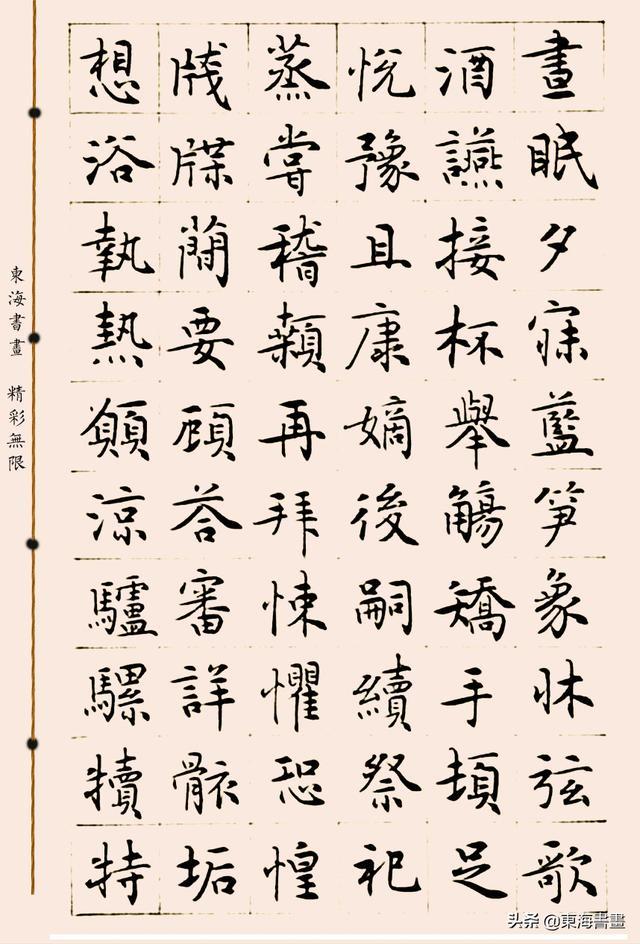 晝眠夕寐藍笋象牀弦歌
酒讌接杯舉觴矯手頓足
悅豫且康嫡後嗣續祭祀
蒸嘗稽顙再拜悚懼恐惶
牋牒簡要顧荅審詳骸垢
想浴執熱願涼驢騾犢特
東海書畫 精彩無限
头条 @東海書畫